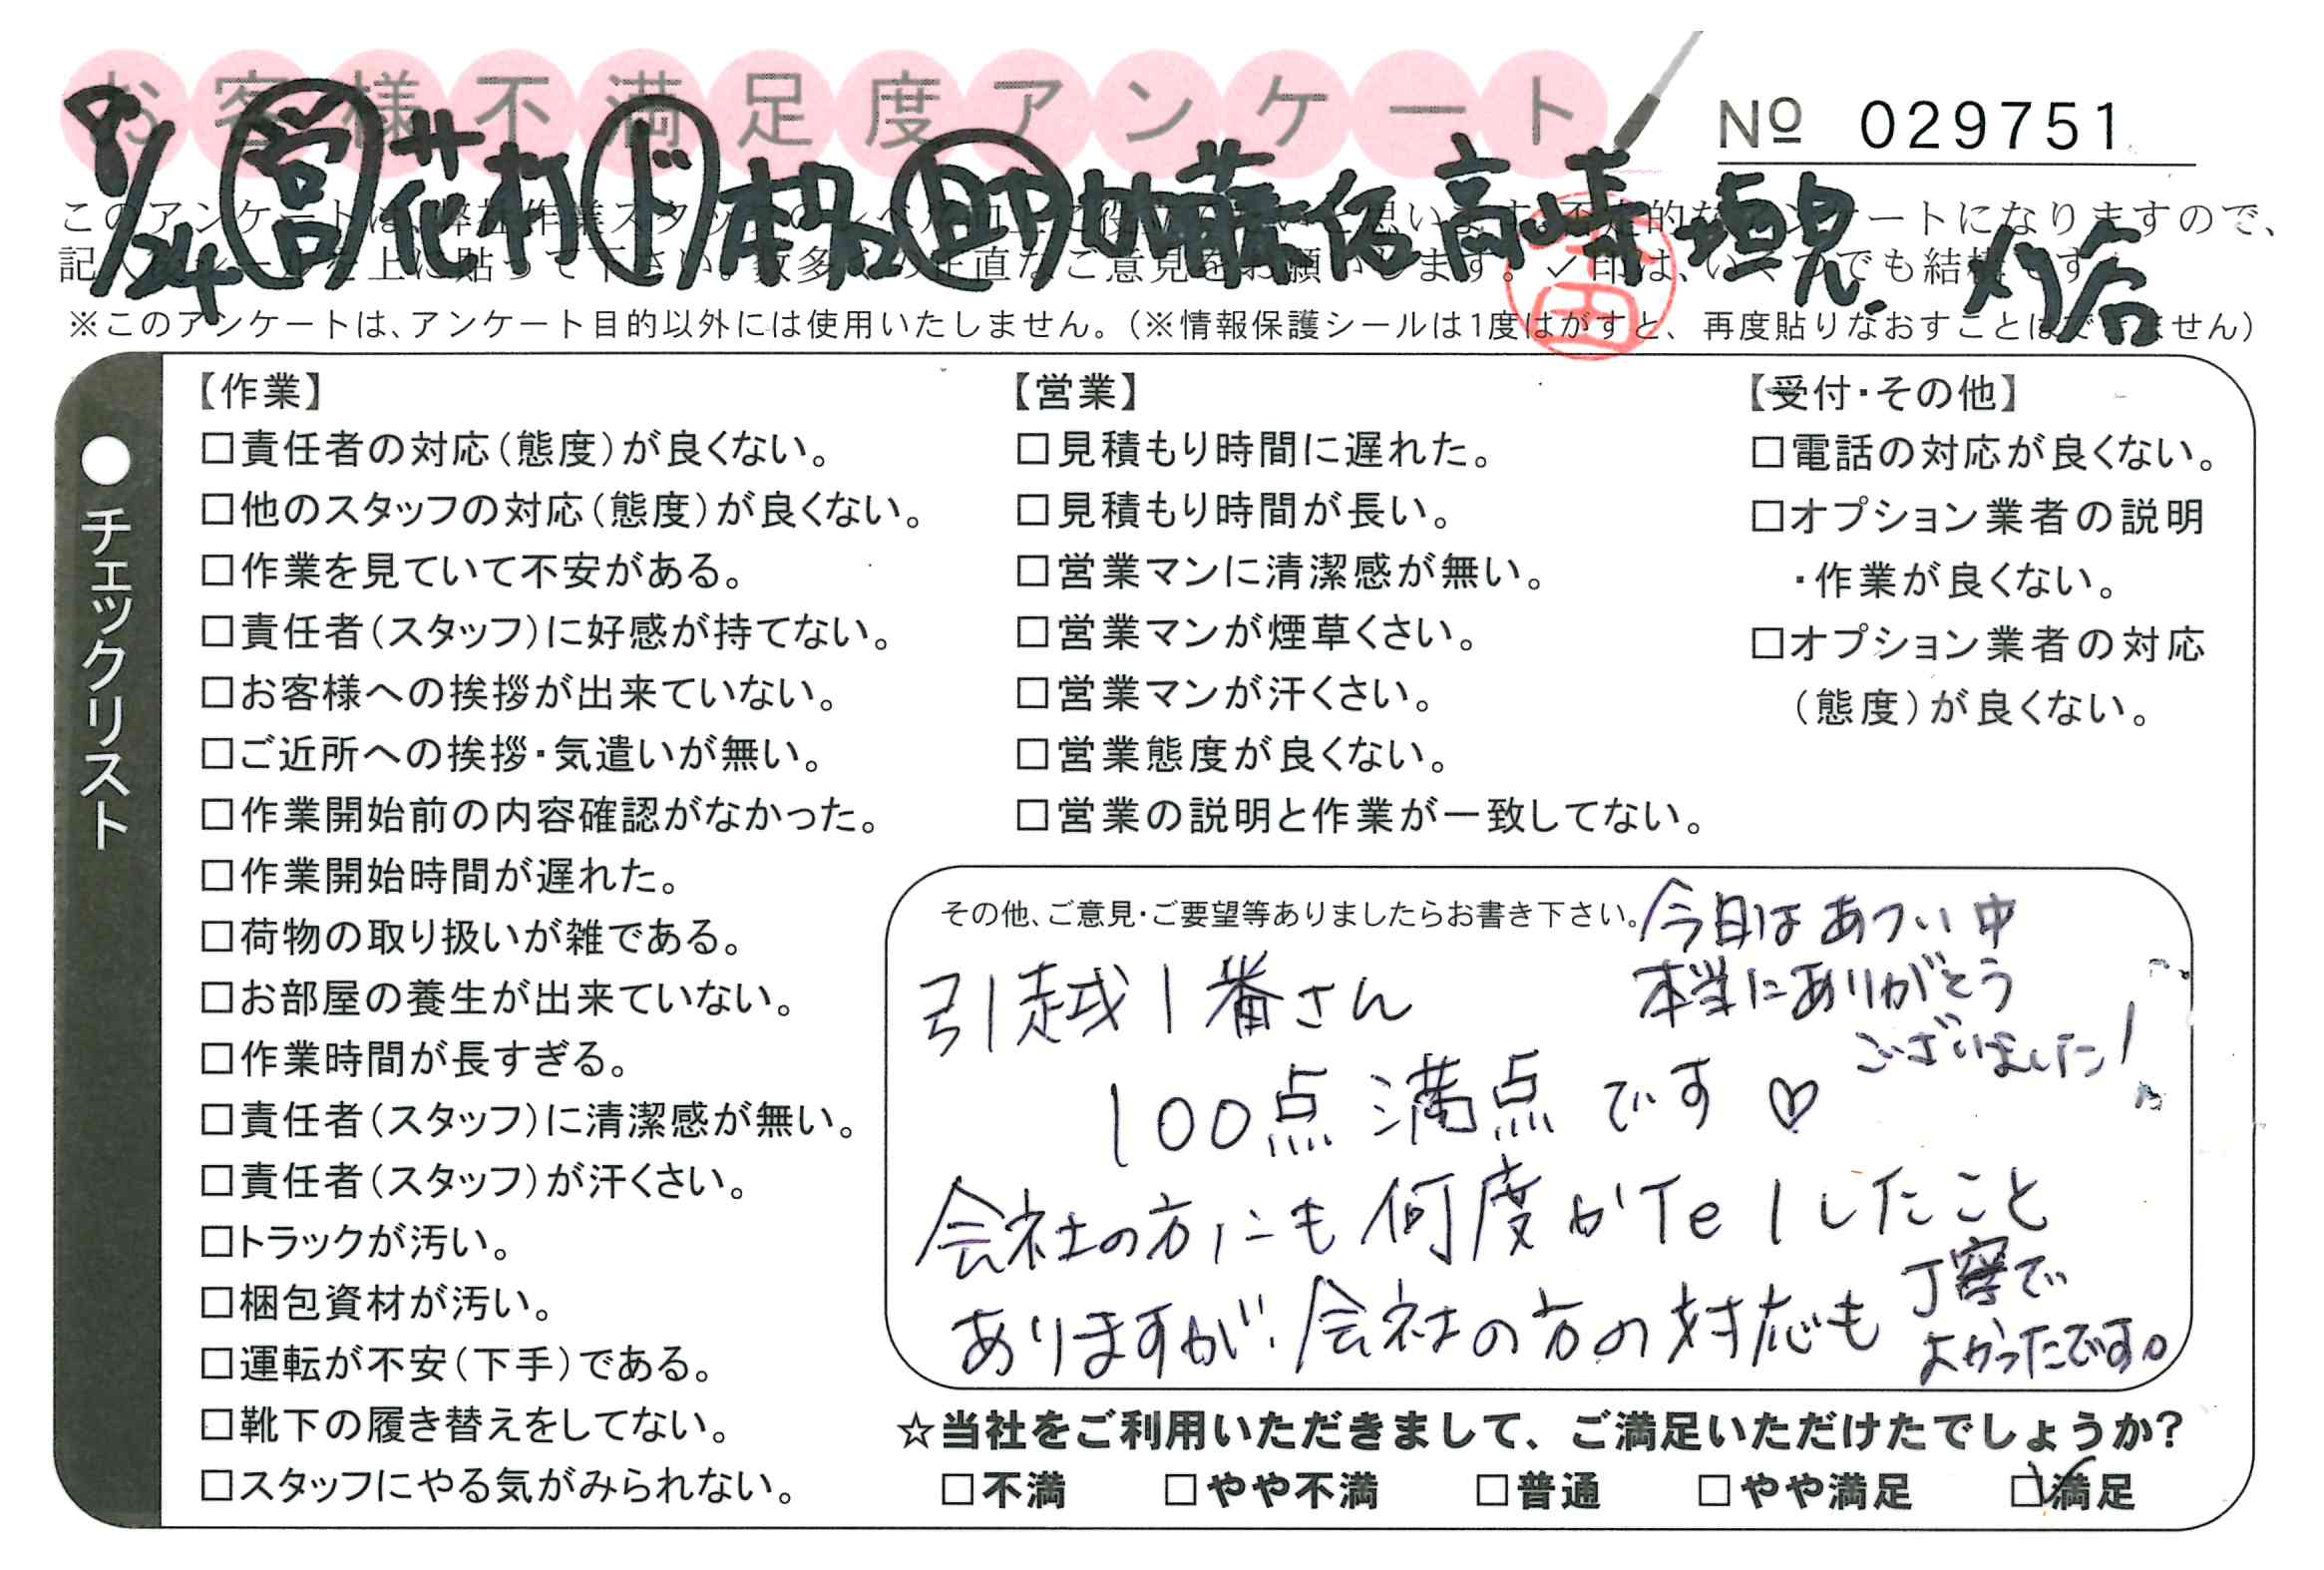 お客様不満足度アンケート
№ 029751
8/24 営 花村 ド 本田 助 加藤 佐 高崎 堀見. 刈谷
このアンケートは、弊社作業スタッフのレベル向上に役立てたいと思います。不定期的なアンケートになりますので、
記入後シールを上に貼って下さい。数多くの正直なご意見をお願いします。✓印は、いくつでも結構です。
※このアンケートは、アンケート目的以外には使用いたしません。（※情報保護シールは1度はがすと、再度貼りなおすことはできません）
●チェックリスト
【作業】
□責任者の対応（態度）が良くない。
□他のスタッフの対応（態度）が良くない。
□作業を見ていて不安がある。
□責任者（スタッフ）に好感が持てない。
□お客様への挨拶が出来ていない。
□ご近所への挨拶・気遣いが無い。
□作業開始前の内容確認がなかった。
□作業開始時間が遅れた。
□荷物の取り扱いが雑である。
□お部屋の養生が出来ていない。
□作業時間が長すぎる。
□責任者（スタッフ）に清潔感が無い。
□責任者（スタッフ）が汗くさい。
□トラックが汚い。
□梱包資材が汚い。
□運転が不安（下手）である。
□靴下の履き替えをしてない。
□スタッフにやる気がみられない。
【営業】
□見積もり時間に遅れた。
□見積もり時間が長い。
□営業マンに清潔感が無い。
□営業マンが煙草くさい。
□営業マンが汗くさい。
□営業態度が良くない。
□営業の説明と作業が一致してない。
【受付・その他】
□電話の対応が良くない。
□オプション業者の説明
・作業が良くない。
□オプション業者の対応
（態度）が良くない。
その他、ご意見・ご要望等ありましたらお書き下さい。
今日はあつい中
本当にありがとう
ございました!
引越1番さん
100点満点です♡
会社の方にも何度かTelしたこと
ありますが、会社の方の対応も
丁寧で
よかったです。
☆当社をご利用いただきまして、ご満足いただけたでしょうか?
□不満 □やや不満 □普通 □やや満足 ☑満足